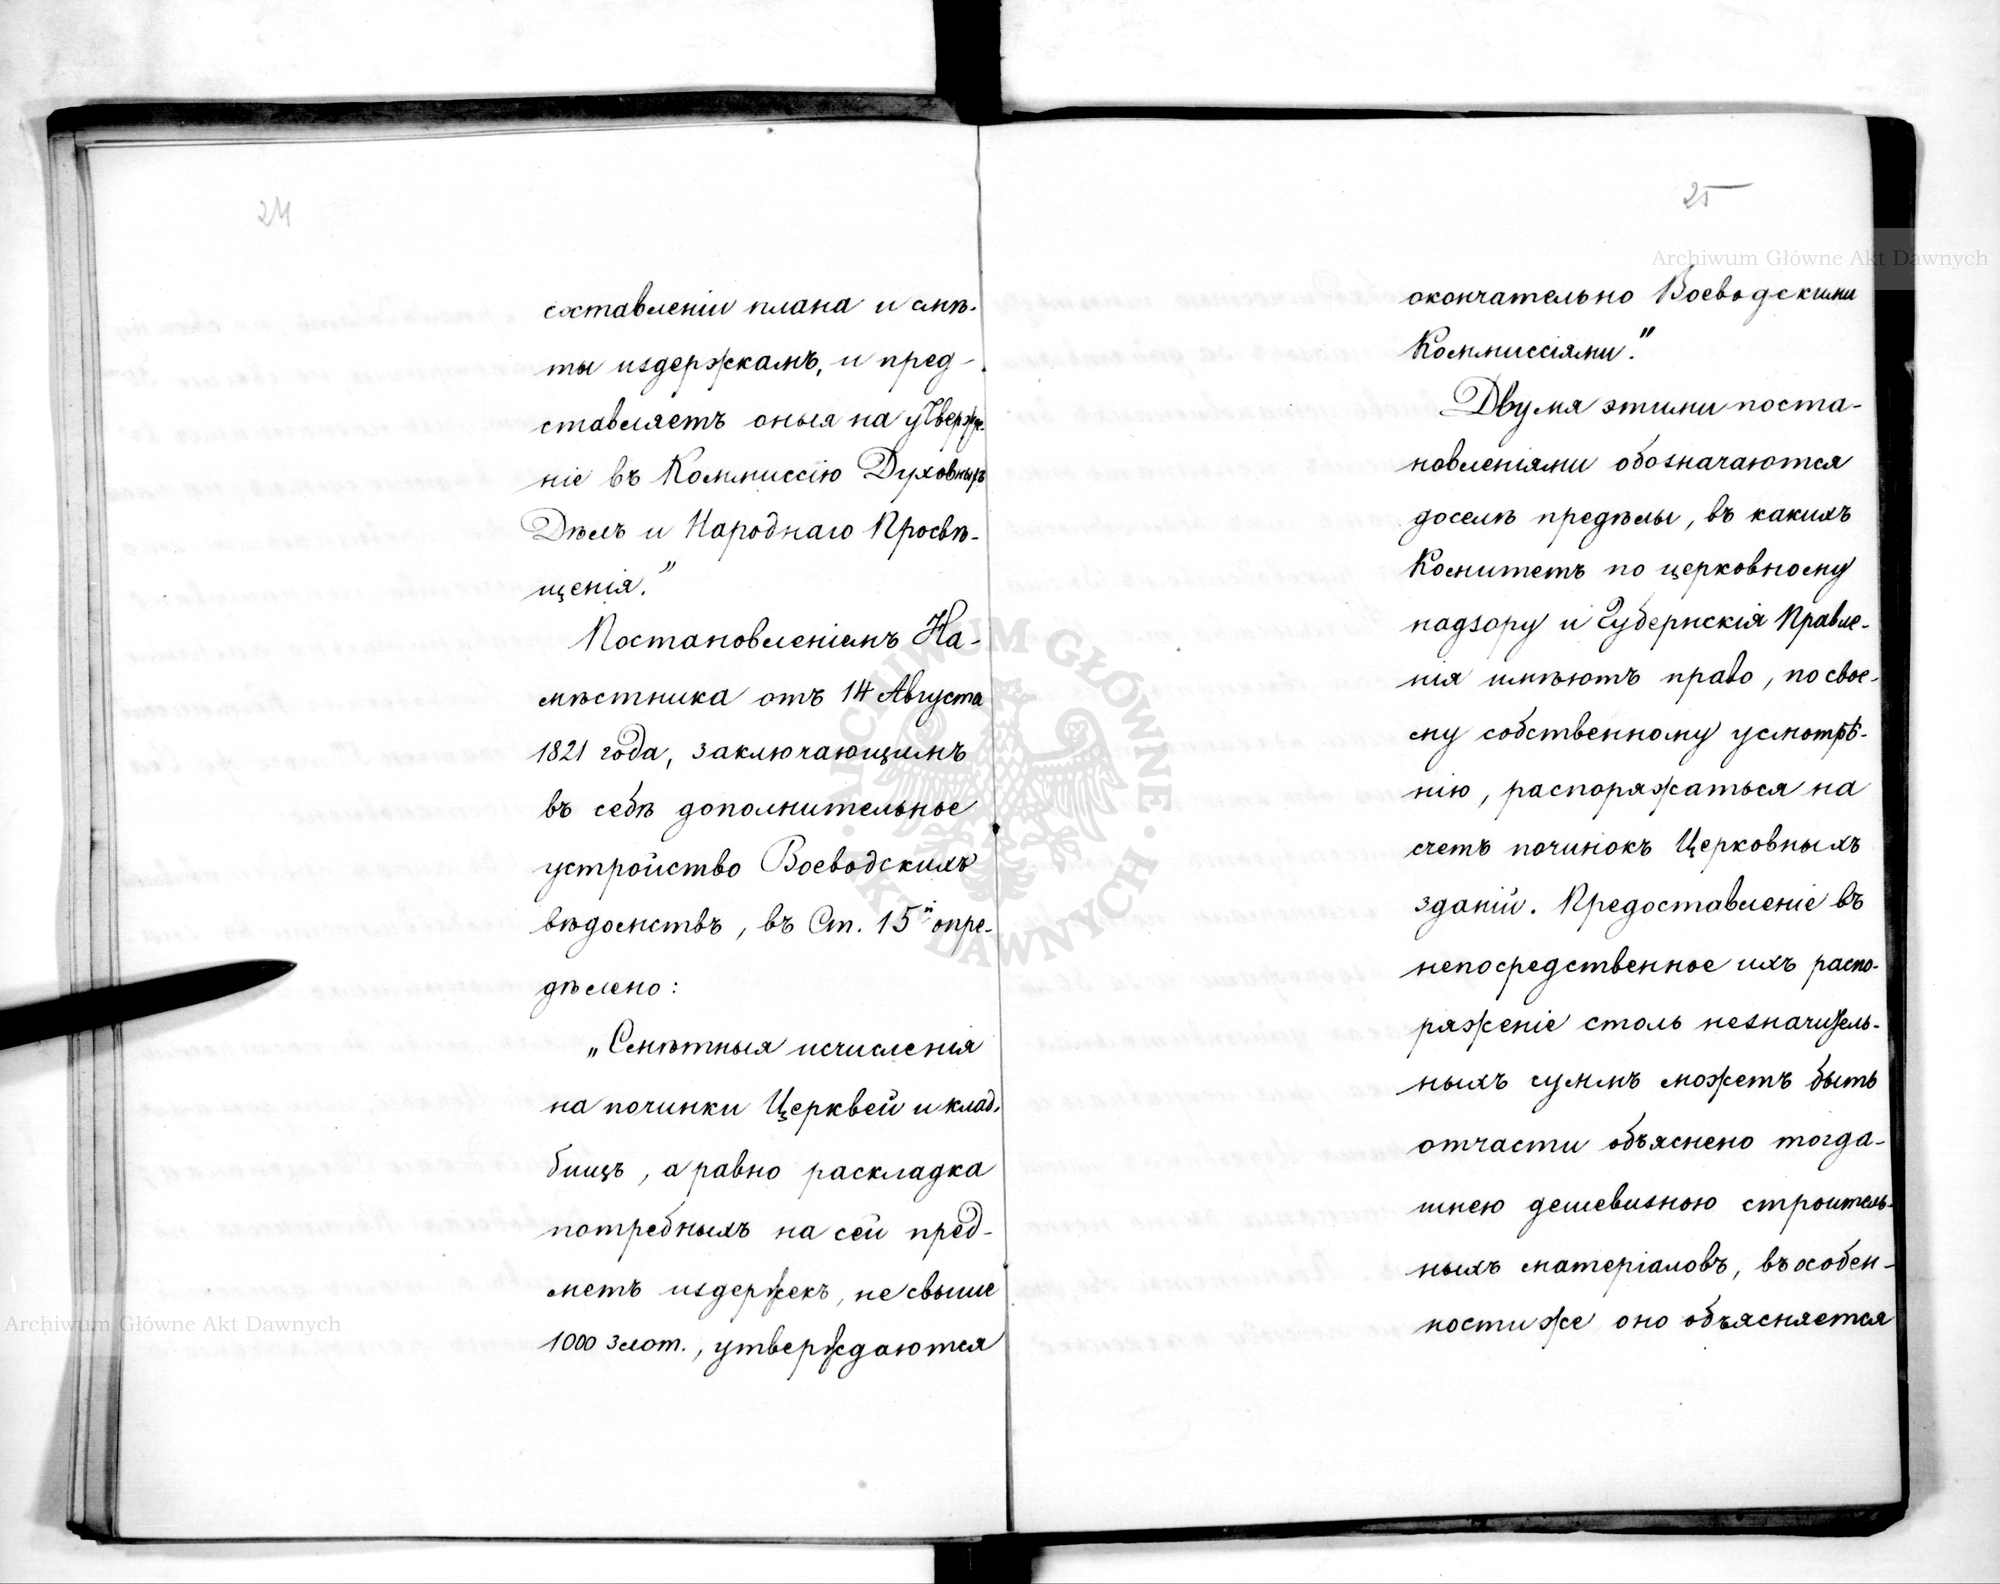 24
составленіи плана и смѣ-
ты издержкамъ, и пред-
ставляетъ оныя на утвержде-
ніе въ Коммиссію Духовныхъ
Дѣлъ и Народнаго Просвѣ-
щенія."
Постановленіемъ На-
мѣстника отъ 14 Августа
1821 года, заключающимъ
въ себѣ дополнительное
устройство Воеводскихъ
вѣдомствъ, въ Ст. 15й опре-
дѣлено:
„Смѣтныя исчисленія
на починки Церквей и клад-
бищъ, а равно раскладка
потребныхъ на сей пред-
метъ издержекъ, не свыше
1000 злот., утверждаются
25
окончательно Воеводскими
Коммиссіями."
Двумя этими поста-
новленіями обозначаются
доселѣ предѣлы, въ какихъ
Комитетъ по церковному
надзору и Губернскія Правле-
нія имѣютъ право, по свое-
му собственному усмотрѣ-
нію, распоряжаться на
счетъ починокъ Церковныхъ
зданій. Предоставленіе въ
непосредственное ихъ распо-
ряженіе столь незначитель-
ныхъ суммъ можетъ быть
отчасти объяснено тогда-
шнею дешевизною строитель-
ныхъ матеріаловъ, въ особен-
ности же оно объясняется
Archiwum Główne Akt Dawnych
Archiwum Główne Akt Dawnych
ARCHIWUM GŁÓWNE AKT DAWNYCH